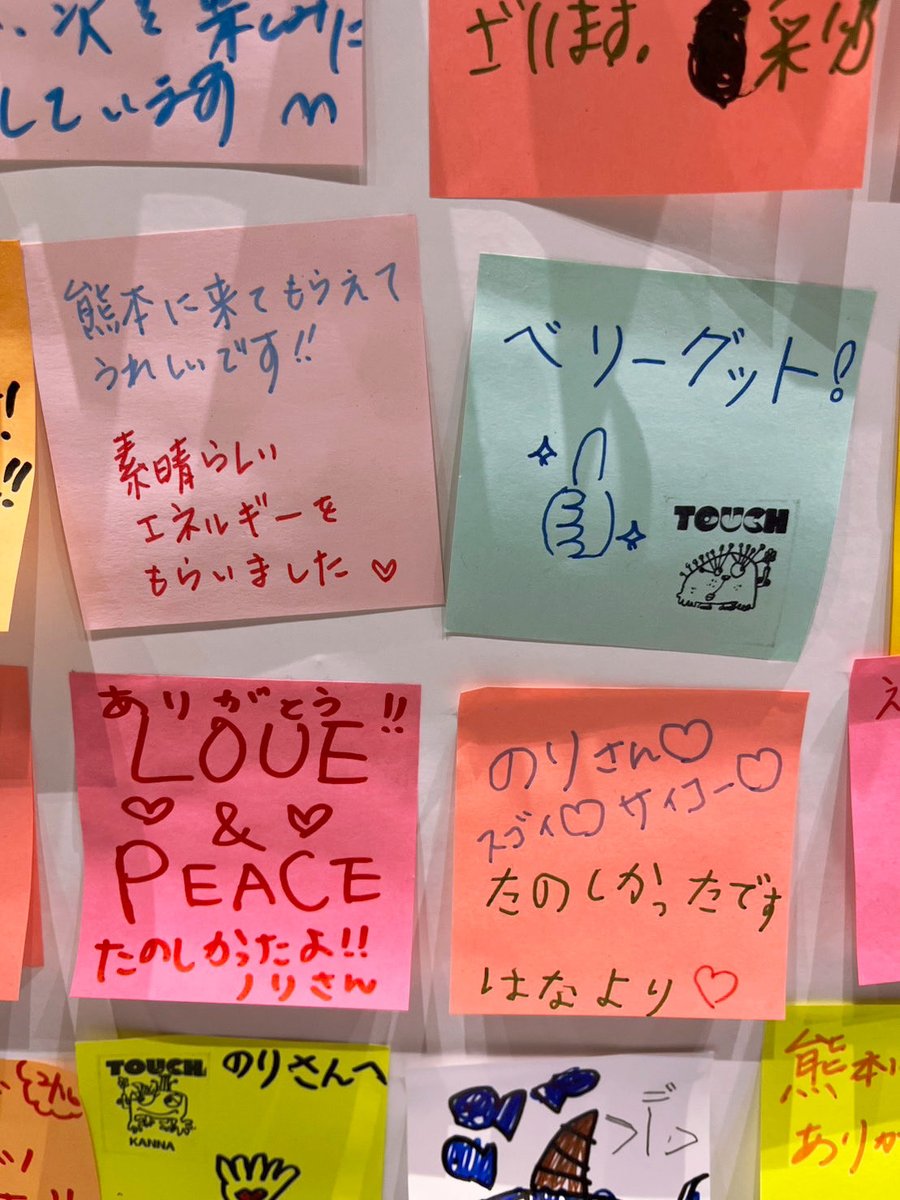 次を楽しみに
しています m
ざいます。
熊本に来てもらえて
うれしいです!!
素晴らしい
エネルギーを
もらいました♡
ベリーグット!
TOUCH
ありがとう!!
LOUE
♡ & ♡
PEACE
たのしかったよ!!
ノリさん
のりさん♡
スゴイ♡サイコー♡
たのしかったです
はなより♡
TOUCH
KANNA
のりさんへ
熊本に
ありが